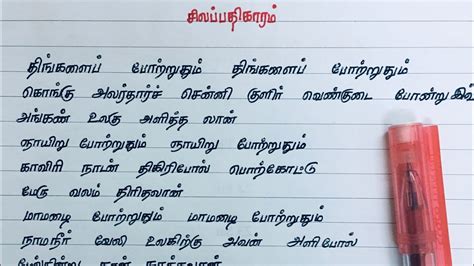 சிலப்பதிகாரம்
திங்களைப் போற்றுதும் திங்களைப் போற்றுதும்
கொங்கு அலர்தார்ச் சென்னி குளிர் வெண்குடை போன்று இவ்
அங்கண் உலகு அளித்த லான்
ஞாயிறு போற்றுதும் ஞாயிறு போற்றுதும்
காவிரி நாடன் திகிரிபோல் பொற்கோட்டு
மேரு வலம் திரிதலான்
மாமழை போற்றுதும் மாமழை போற்றுதும்
நாமநீர் வேலி உலகிற்கு அவன் அளிபோல்